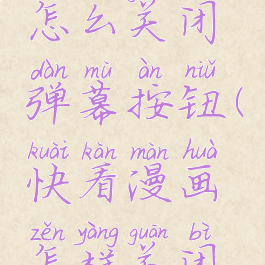 怎么关闭
dàn mù àn niǔ
弹幕按钮(
kuài kàn màn huà
快看漫画
zěn yàng guān bì
怎样关闭